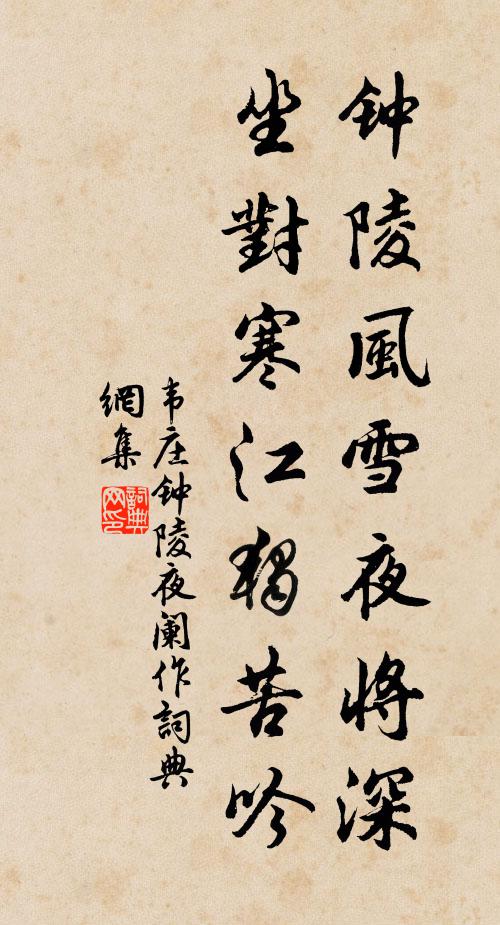 钟陵風雪夜将深
坐對寒江獨苦吟
韦庄钟陵夜阑作詞典
網集
詞典网印